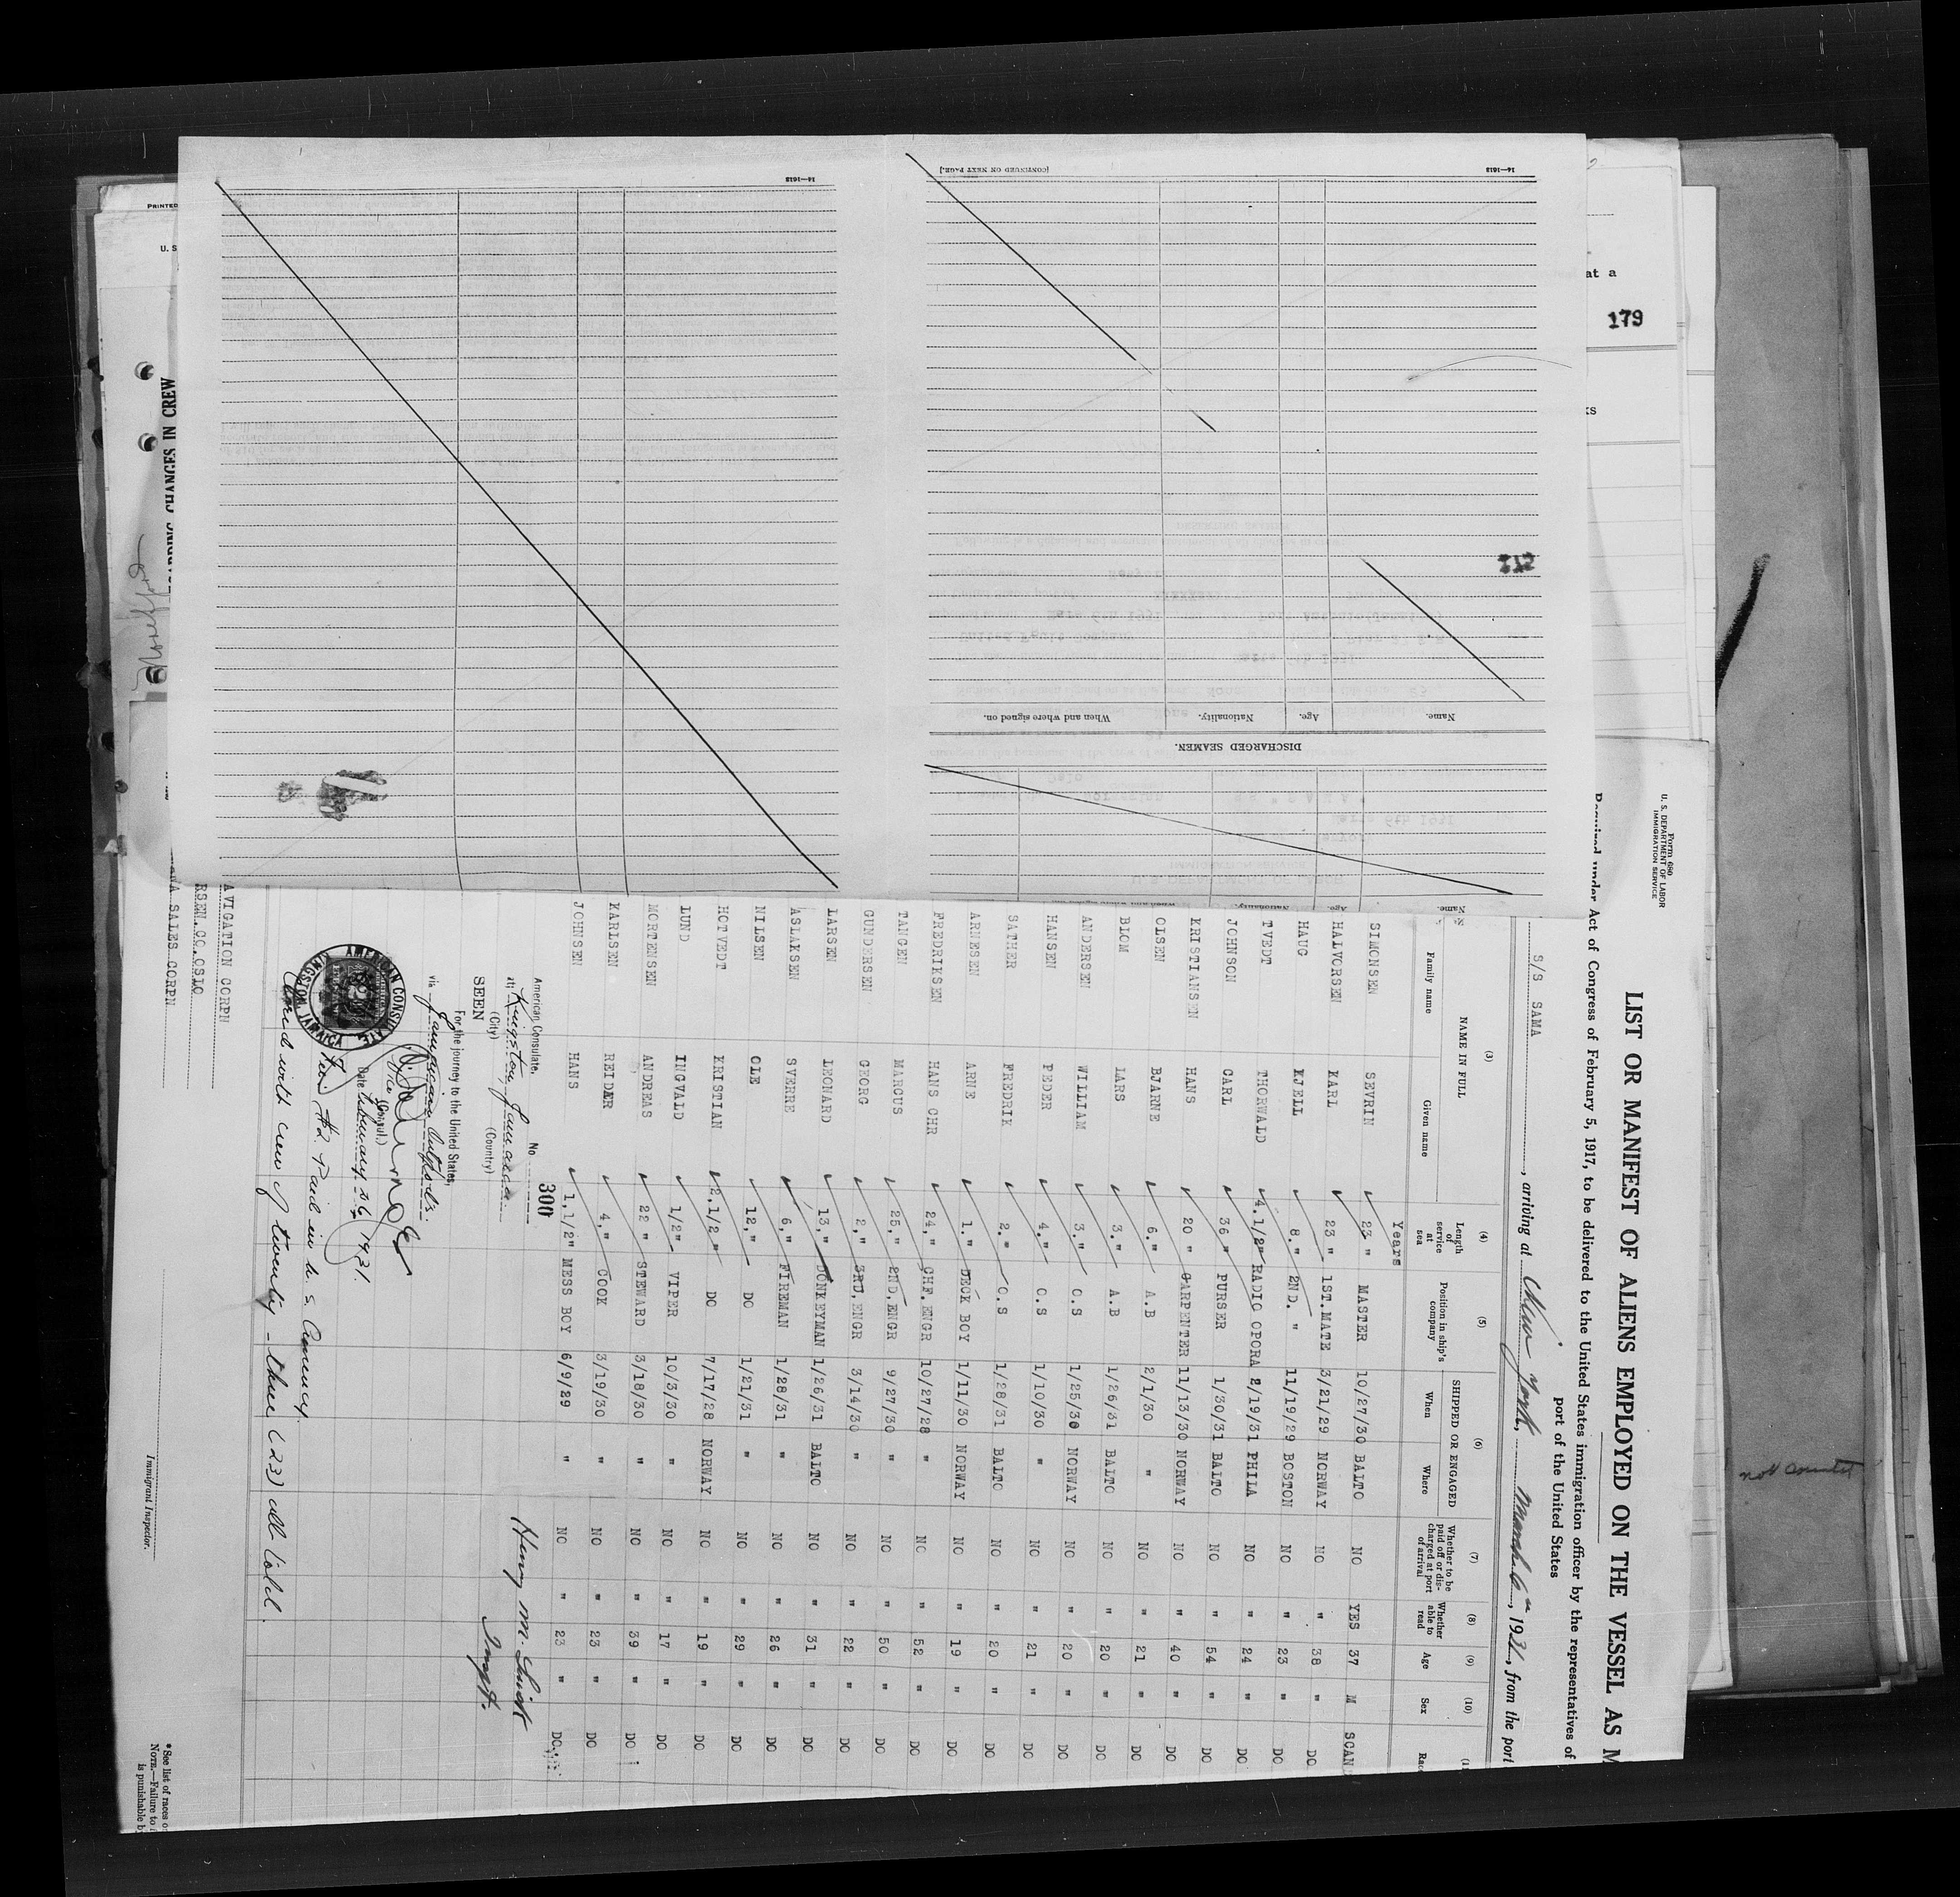 Form 680
U. S. DEPARTMENT OF LABOR
IMMIGRATION SERVICE
LIST OR MANIFEST OF ALIENS EMPLOYED ON THE VESSEL AS M
Required under Act of Congress of February 5, 1917, to be delivered to the United States immigration officer by the representatives of
port of the United States
S/S SAMA, arriving at New York, March 6, 1931, from the port
(3) (4) (5) (6) (7) (8) (9) (10)
NAME IN FULL Length of service at sea Position in ship's company SHIPPED OR ENGAGED Whether to be paid off or discharged at port of arrival Whether able to read Age Sex Race
Family name Given name When Where
Years
SIMONSEN SEVRIN 23 " MASTER 10/27/30 BALTO NO YES 37 M SCAN
HALVORSEN KARL 23 " 1ST.MATE 3/21/29 NORWAY NO " 38 " DO
HAUG KJELL 8." 2ND. " 11/19/29 BOSTON NO " 23 " DO
TVEDT THORWALD 4.1/2" RADIO OPORA 2/19/31 PHILA NO " 24 " DO
JOHNSON CARL 36 " PURSER 1/30/31 BALTO NO " 54 " DO
KRISTIANSEN HANS 20 " CARPENTER 11/13/30 NORWAY NO " 40 " DO
OLSEN BJARNE 6." A.B 2/1/30 " NO " 21 " DO
BLOM LARS 3." A.B 1/26/31 BALTO NO " 20 " DO
ANDERSEN WILLIAM 3." O.S 1/25/30 NORWAY NO " 20 " DO
HANSEN PEDER 4." O.S 1/10/30 " NO " 21 " DO
SATHER FREDRIK 2." O.S 1/28/31 BALTO NO " 20 " DO
ARNESEN ARNE 1." DECK BOY 1/11/30 NORWAY NO " 19 " DO
FREDRIKSEN HANS CHR 24," CHF.ENGR 10/27/28 " NO " 52 " DO
TANGEN MARCUS 25," 2ND.ENGR 9/27/30 " NO " 50 " DO
GUNDERSEN GEORG 2," 3RD.ENGR 3/14/30 " NO " 22 " DO
LARSEN LEONARD 13," DONKEYMAN 1/26/31 BALTO NO " 31 " DO
ASLAKSEN SVERRE 6," FIREMAN 1/28/31 " NO " 26 " DO
NILSEN OLE 12," DO 1/21/31 " NO " 29 " DO
HOTVEDT KRISTIAN 2,1/2 " DO 7/17/28 NORWAY NO " 19 " DO
LUND INGVALD 1/2" VIPER 10/3/30 " NO " 17 " DO
MORTENSEN ANDREAS 22 " STEWARD 3/18/30 " NO " 39 " DO
KARLSEN REIDER 4," COOK 3/19/30 " NO " 23 " DO
JOHNSEN HANS 1,1/2" MESS BOY 6/9/29 " NO " 23 " DO
American Consulate. No. 300
at; Kingston, Jamaica
(City) (Country)
SEEN
For the journey to the United States,
via Jamaican Outports.
Vice (Consul.)
Date February 26, 1931.
AMERICAN CONSULATE
KINGSTON, JAMAICA
Fee $2. Paid in U. S. Currency.
Closed with crew of twenty-three (23) all told.
Henry M. Smith
Inspt.
AVIGATION CORPN
RSEN.CO.OSLO
NA SALES CORPN
Immigrant Inspector.
*See list of races o
NOTE.—Failure to
is punishable b
14—1612
[CONTINUED ON NEXT PAGE.]
14—1612
Name. Age. Nationality. When and where signed on.
DISCHARGED SEAMEN.
Name. Age. Nationality.
212
179
at a
PRINTED
U. S
CHANGES IN CREW